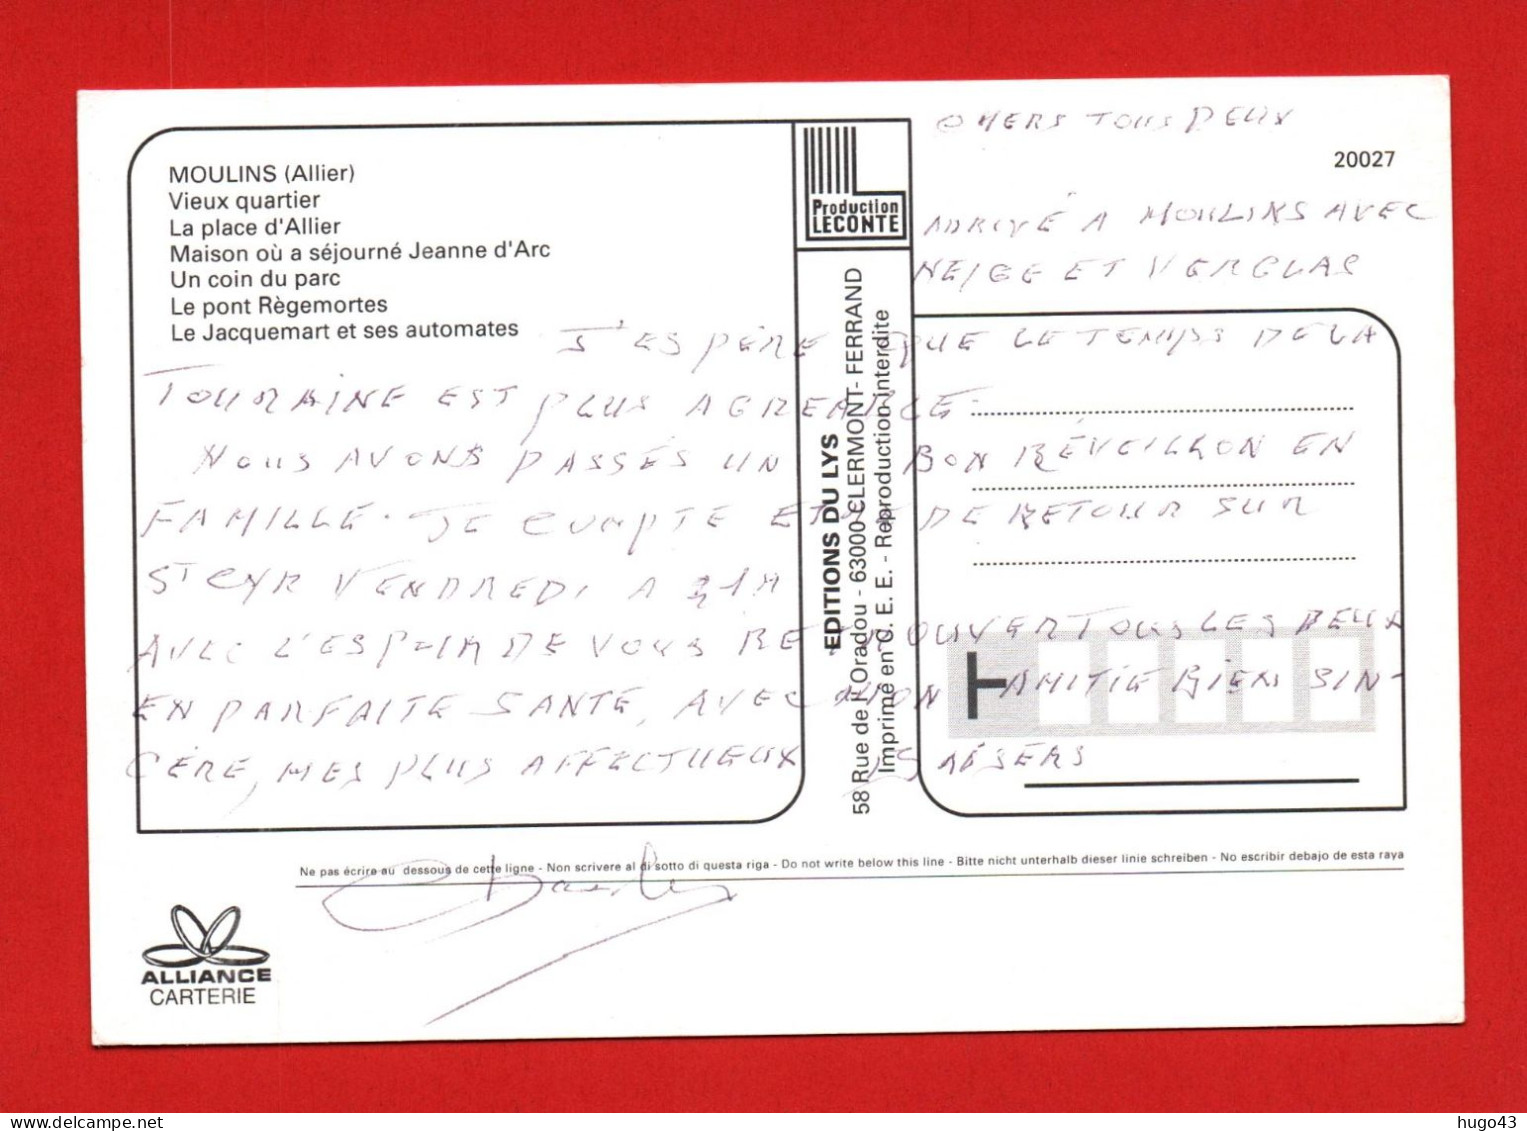 MOULINS (Allier)
Vieux quartier
La place d'Allier
Maison où a séjourné Jeanne d'Arc
Un coin du parc
Le pont Règemortes
Le Jacquemart et ses automates
Production
LECONTE
EDITIONS DU LYS
58 Rue de l'Oradou - 63000 CLERMONT-FERRAND
Imprimé en C. E. E. - Reproduction interdite
20027
CHERS TOUS DEUX
ARRIVÉ A MOULINS AVEC
NEIGE ET VERGLAS
J'ESPÈRE QUE LE TEMPS DE LA
TOURAINE EST PLUS AGREABLE.
NOUS AVONS PASSÉS UN BON RÉVEILLON EN
FAMILLE. JE COMPTE ETRE DE RETOUR SUR
ST CYR VENDREDI A 21H
AVEC L'ESPOIR DE VOUS RETROUVER TOUS LES DEUX
EN PARFAITE SANTE, AVEC MON AMITIE BIEN SIN-
CÈRE, MES PLUS AFFECTUEUX BAISERS
Ne pas écrire au dessous de cette ligne - Non scrivere al di sotto di questa riga - Do not write below this line - Bitte nicht unterhalb dieser linie schreiben - No escribir debajo de esta raya
ALLIANCE
CARTERIE
hugo43